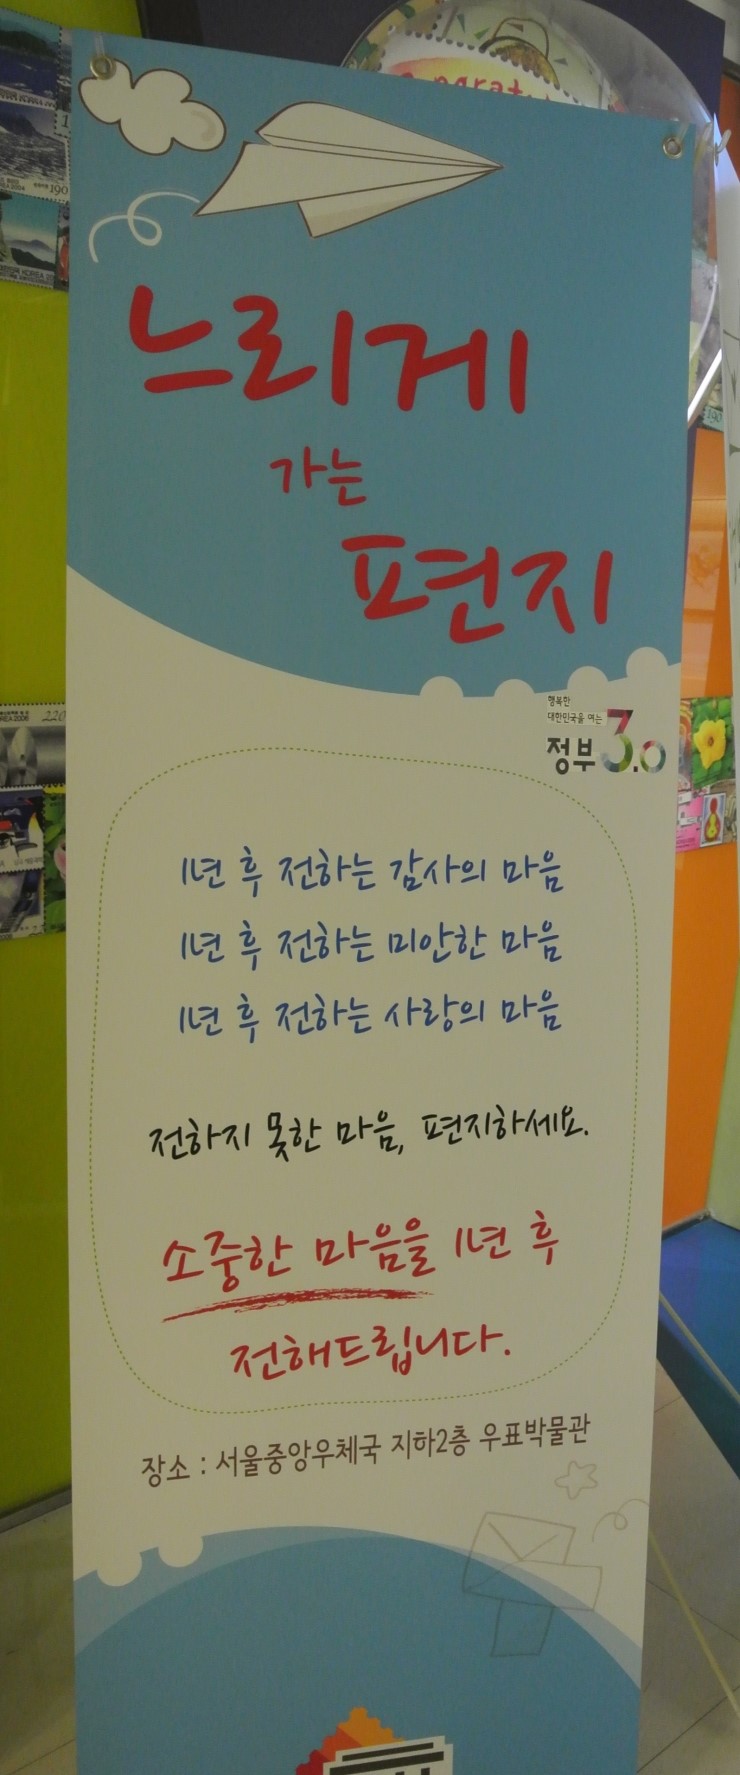 느리게
가는
편지
행복한
대한민국을 여는
정부 3.0
1년 후 전하는 감사의 마음
1년 후 전하는 미안한 마음
1년 후 전하는 사랑의 마음
전하지 못한 마음, 편지하세요.
소중한 마음을 1년 후
전해드립니다.
장소 : 서울중앙우체국 지하2층 우표박물관
190
220